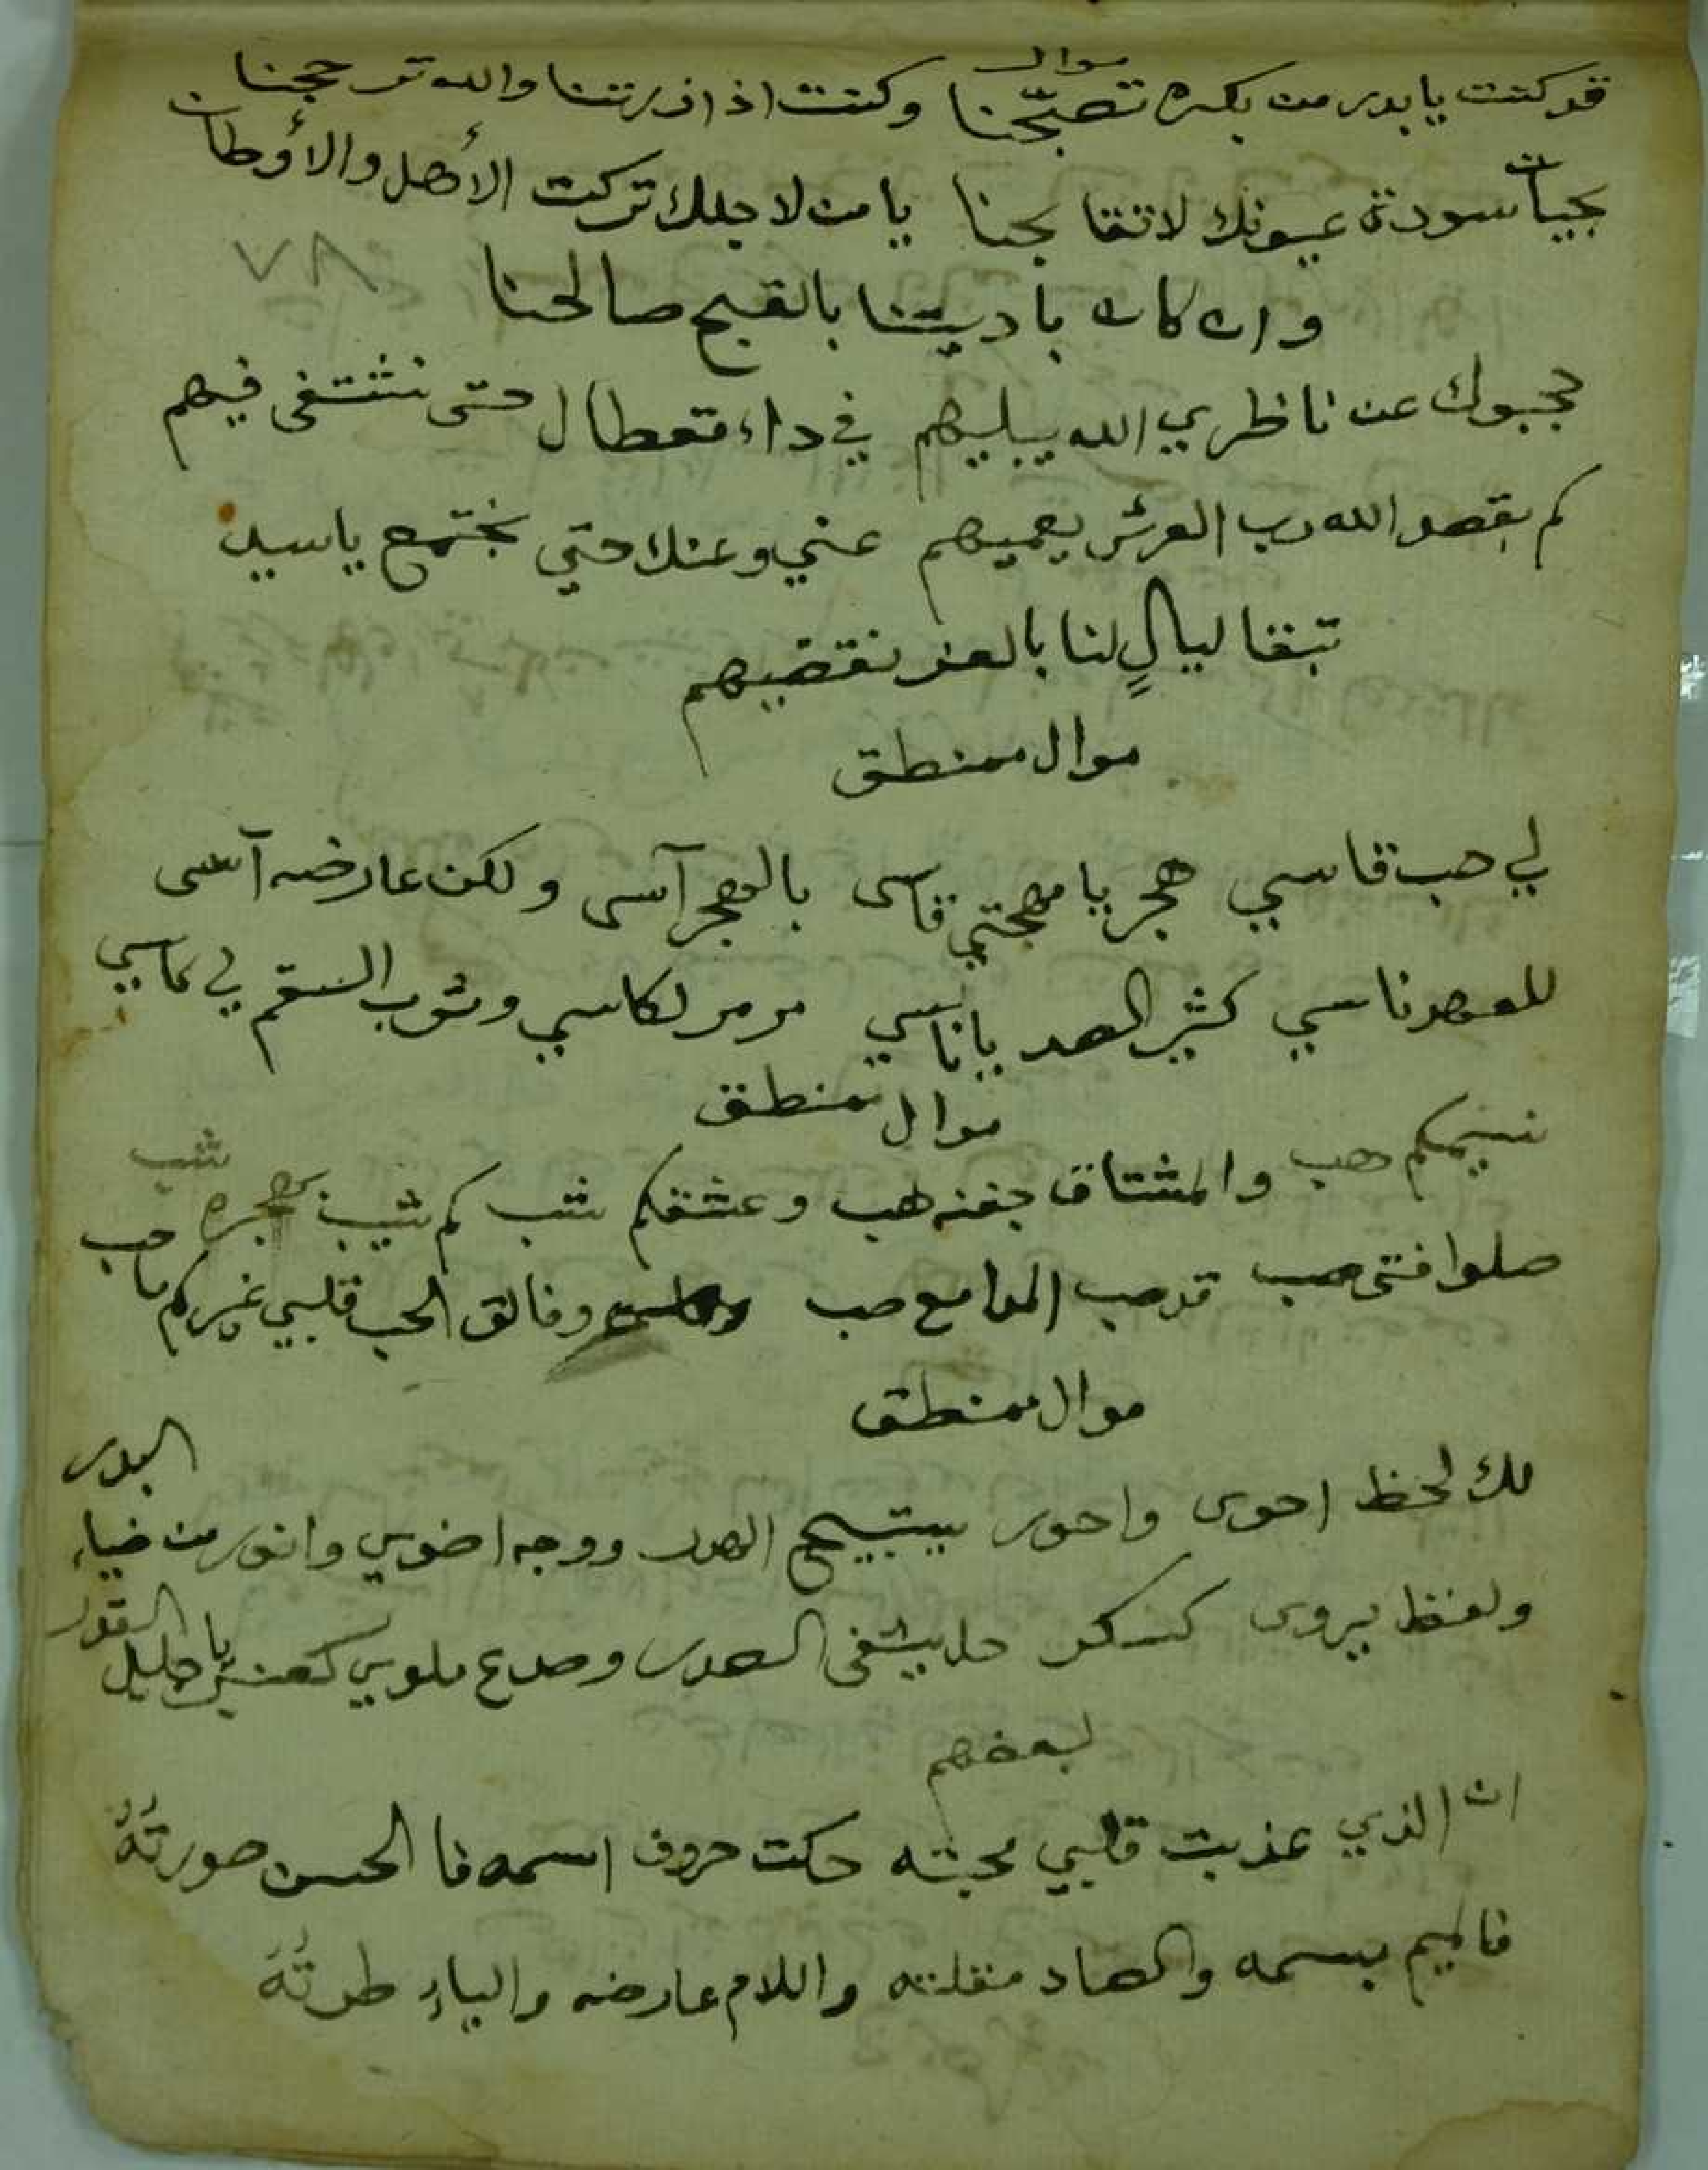 موال
قد كنت يا بدر من بكره تصبّحنا وكنت اذا زرتنا والله ترجحنا
بحيات سودة عيونك لا تقابحنا يا من لاجلك تركت الأهل والأوطان
٧٨
وان كان باديتنا بالقبح صالحنا
حجبوك عن ناظري الله يبليهم في داء متعطال حتى نشتفى فيهم
كم بقصد الله رب العرش يعميهم عني وعنك حتي نجتمع يا سيد
تبقا ليالٍ لنا بالعز نقضيهم
موال ممنطق
لي حب قاسي هجر يا مهجتي قاسى بالهجر آسى ولكن عارضه آسى
للعهد ناسي كثير الصد يا ناسي مر مر لكاسي وثوب السقم لي كاسي
موال ممنطق
نسيمكم هب والمشتاق جفنه هب وعشقكم شب كم شيب بهجره شب
صلوا فتى صب قد صب المدامع صب وفالق الحب قلبي غيركم ما حب
موال ممنطق
لك لحظ احوى واحور يبتيح الهدر ووجه اضوى وانور من ضياء البدر
ولفظ يروى كسكر حل يشفى الصدر وصدغ ملوي كعنبر يا جليل القدر
لبعضهم
ان الذي عذبت قلبي محبته حكت حروف اسمه فا الحسن صورتهُ
فالميم بسمه والصاد مقلته واللام عارضه والياء طرتهُ